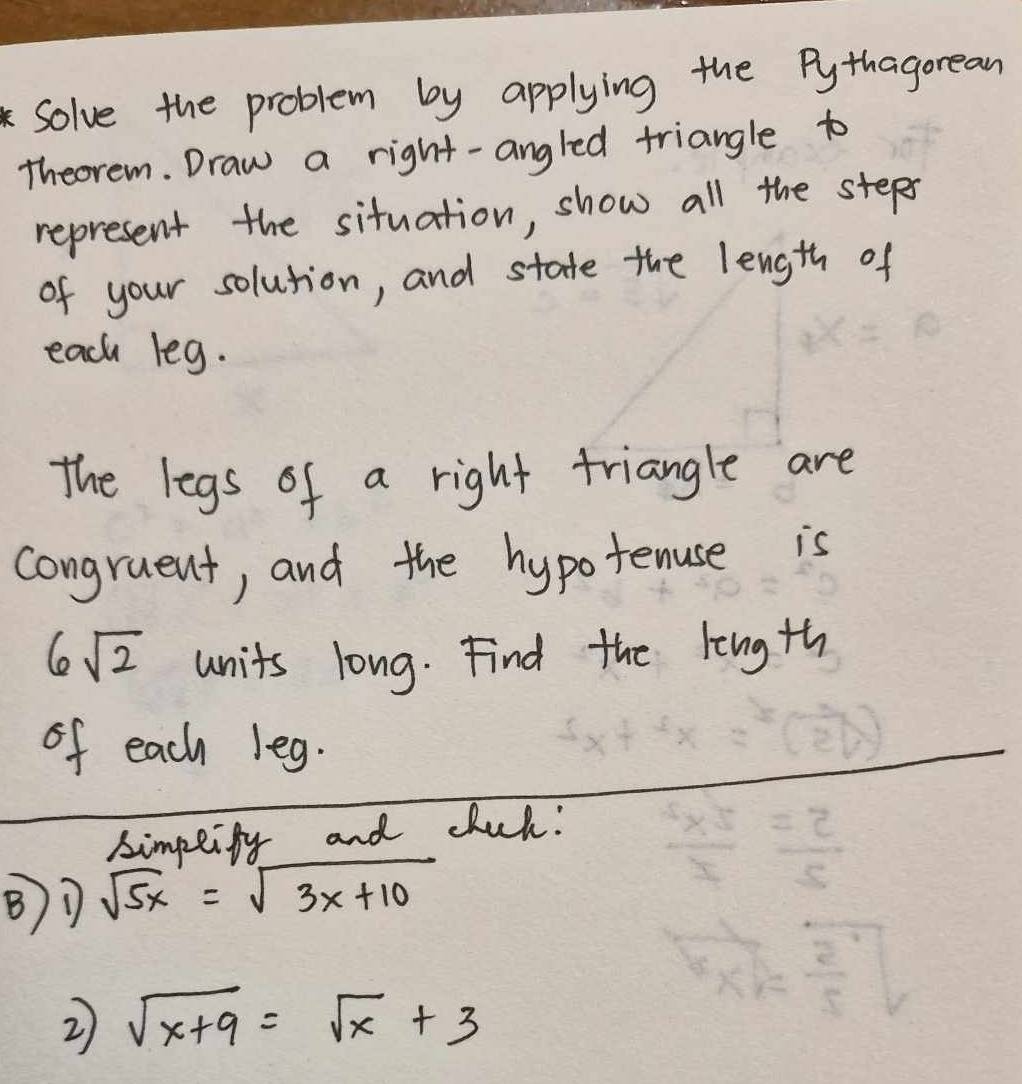 * Solve the problem by applying the Pythagorean
Theorem. Draw a right-angled triangle to
represent the situation, show all the steps
of your solution, and state the length of
each leg.
The legs of a right triangle are
Congruent, and the hypotenuse is
6√2 units long. Find the length
of each leg.
Simplify and check:
B) 1) √5x = √3x+10
2) √x+9 = √x + 3